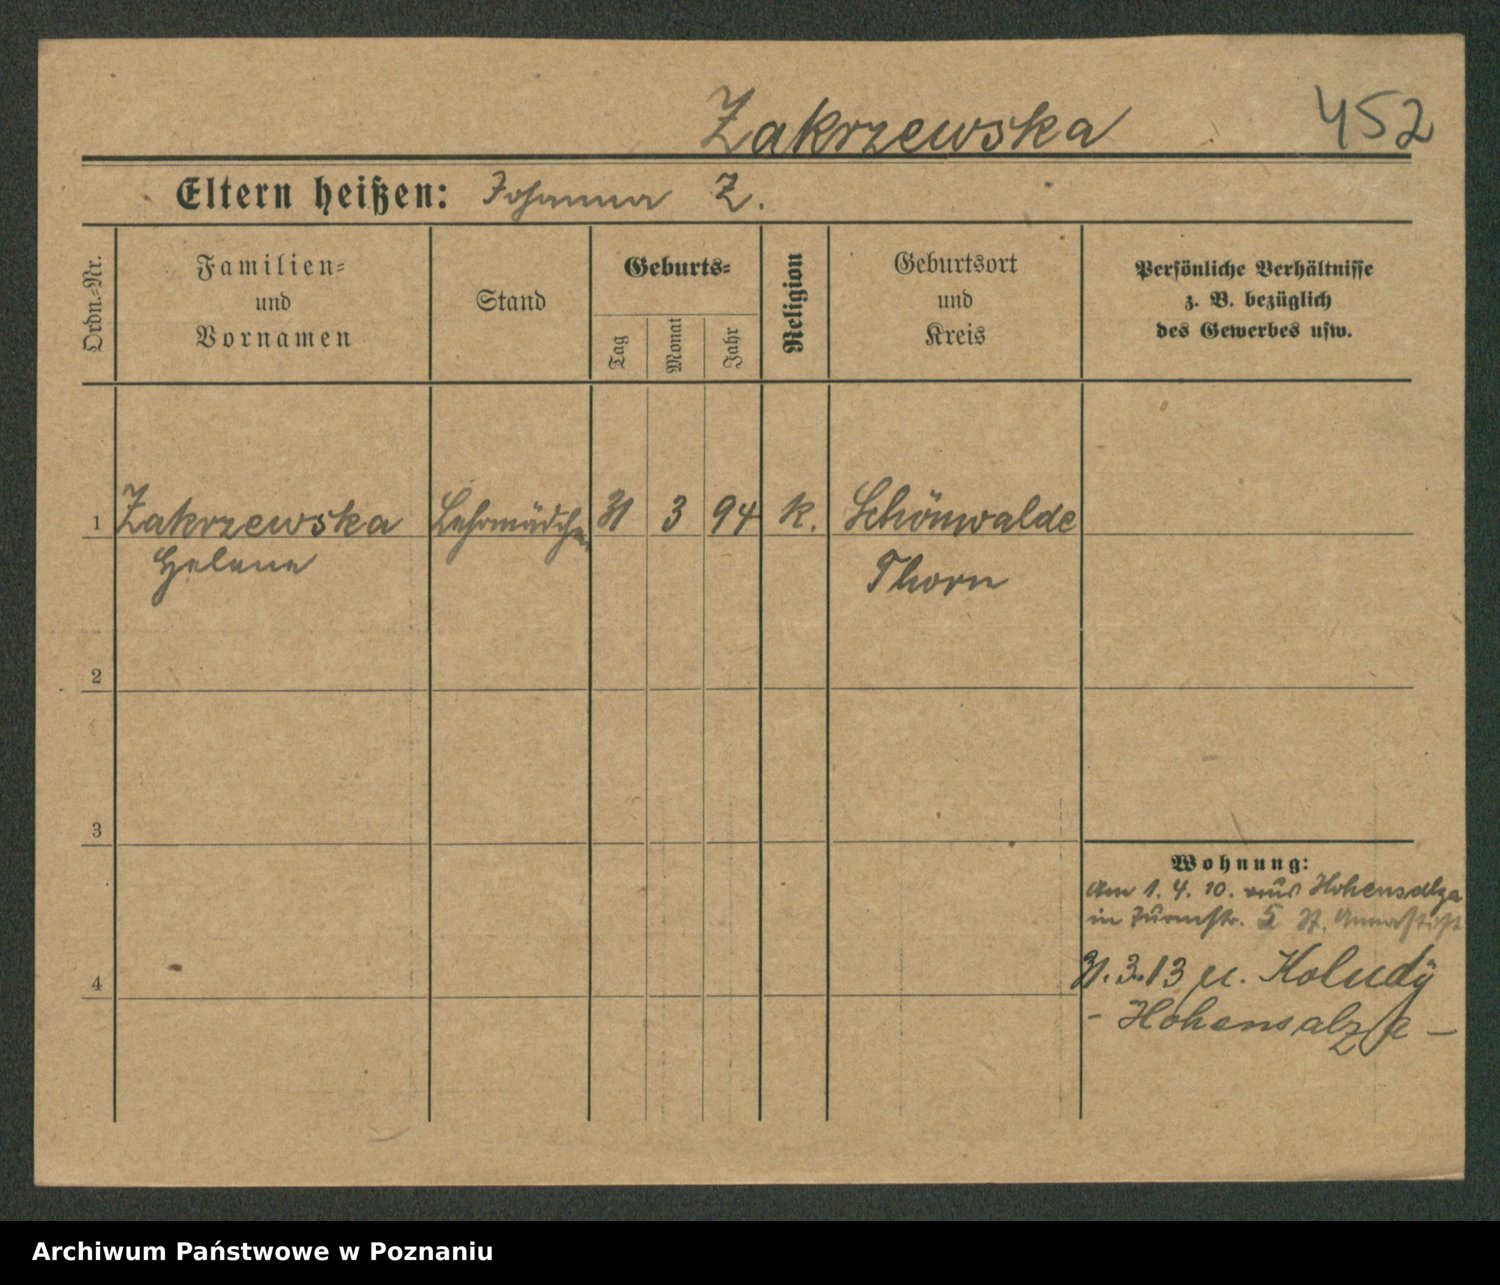 Zakrzewska 452
Eltern heißen: Johanna Z.
Ordn.-Nr.
Familien-
und
Vornamen
Stand
Geburts-
Tag
Monat
Jahr
Religion
Geburtsort
und
Kreis
Persönliche Verhältnisse
z. B. bezüglich
des Gewerbes usw.
1 Zakrzewska Lehrmädchen 31 3 94 k. Schönwalde
Helene Thorn
2
3
4
Wohnung:
Am 1. 4. 10. aus Hohensalza
in Turmstr. 5 St. Annastift
31. 3. 13 n. Koludy
- Hohensalza -
Archiwum Państwowe w Poznaniu